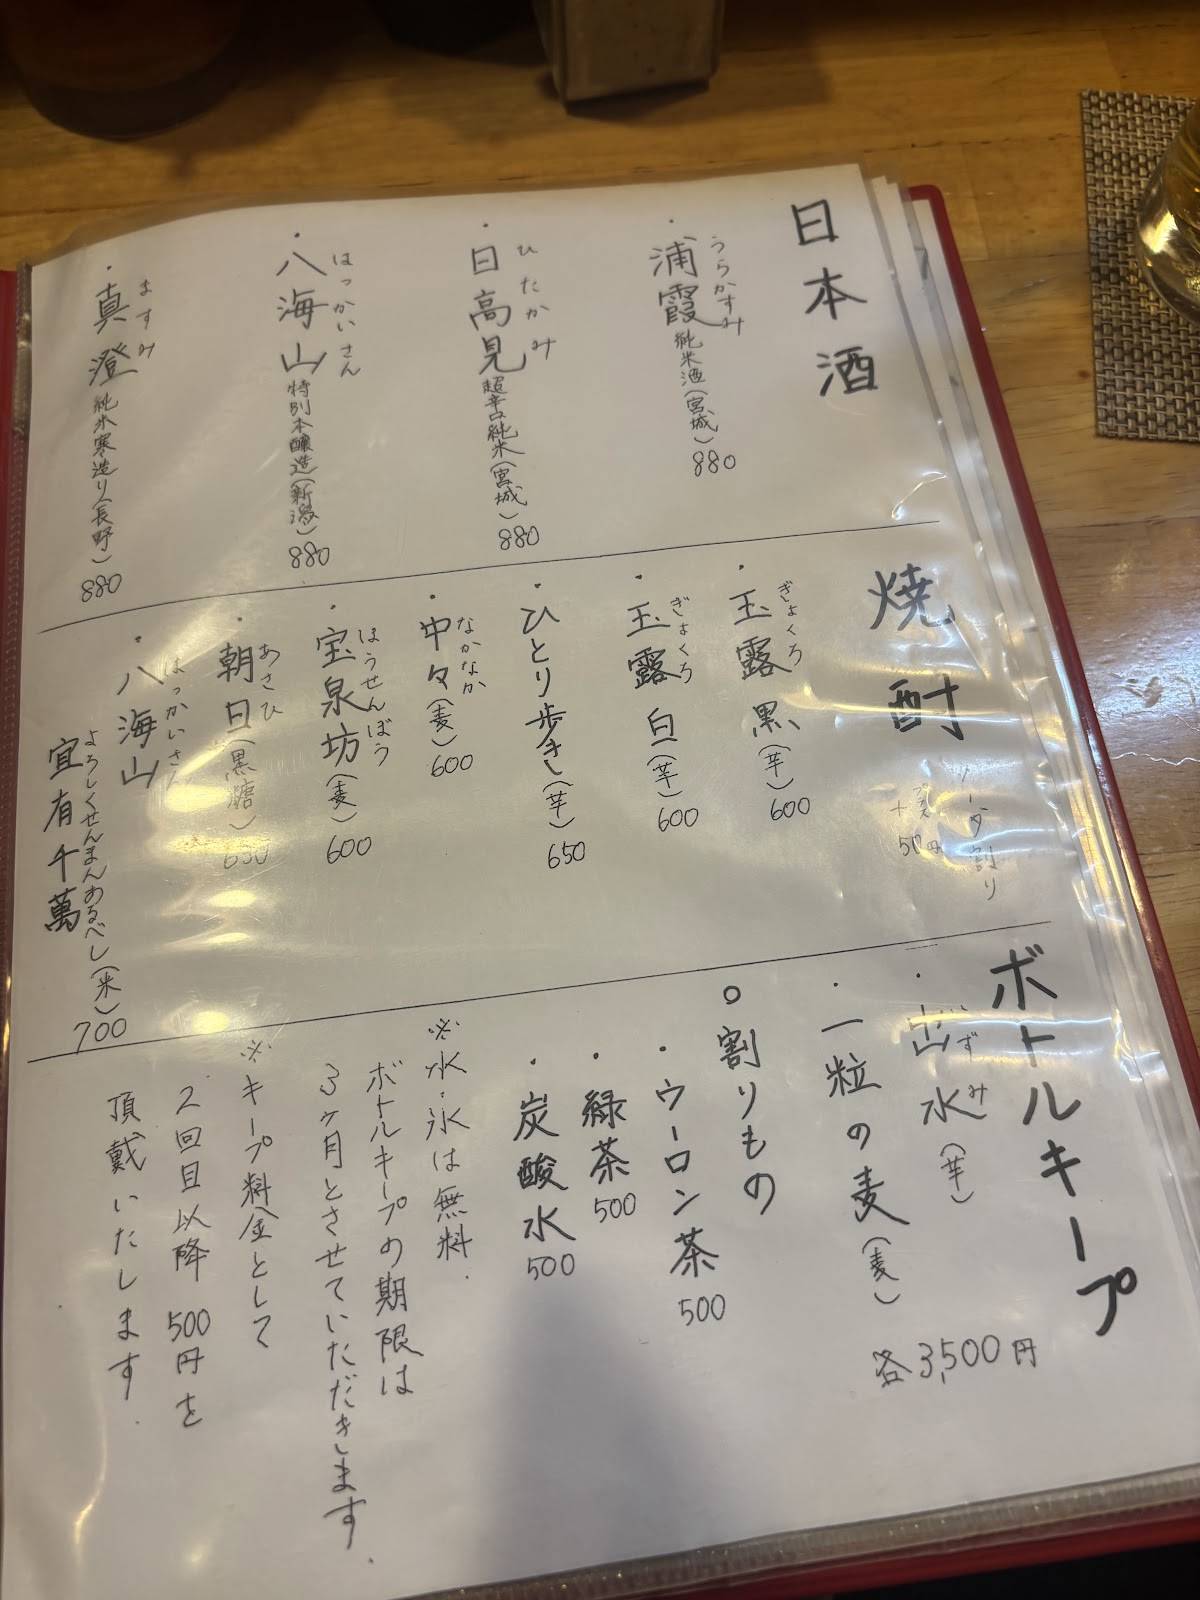 日本酒
・浦霞 純米酒(宮城) 880
うらかすみ
・日高見 超辛口純米(宮城) 880
ひたかみ
・八海山 特別本醸造(新潟) 880
はっかいさん
・真澄 純米寒造り(長野) 880
ますみ
焼酎
ソーダ割り
プラス
+50円
・玉露 黒(芋) 600
ぎょくろ
・玉露 白(芋) 600
ぎょくろ
・ひとり歩き(芋) 650
・中々(麦) 600
なかなか
・宝泉坊(麦) 600
ほうせんぼう
・朝日(黒糖) 650
あさひ
・八海山
はっかいさん
宜有千萬
よろしくせんまんあるべし(米)
700
ボトルキープ
・出水(芋)
いずみ
・一粒の麦(麦)
各3,500円
○割りもの
・ウーロン茶 500
・緑茶 500
・炭酸水 500
※水・氷は無料.
ボトルキープの期限は
3ヶ月とさせていただきます.
※キープ料金として
2回目以降 500円を
頂戴いたします.